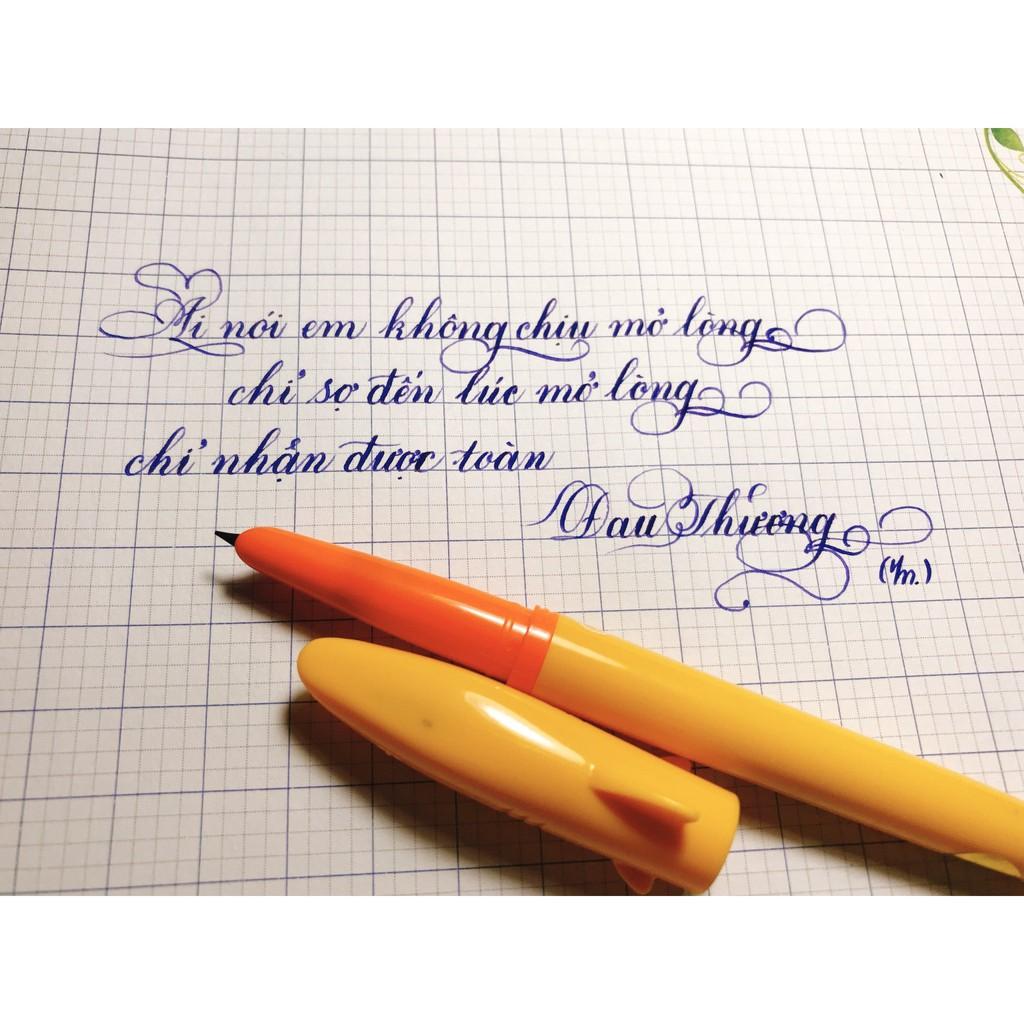 Ai nói em không chịu mở lòng
chỉ sợ đến lúc mở lòng
chỉ nhận được toàn
Đau Thương